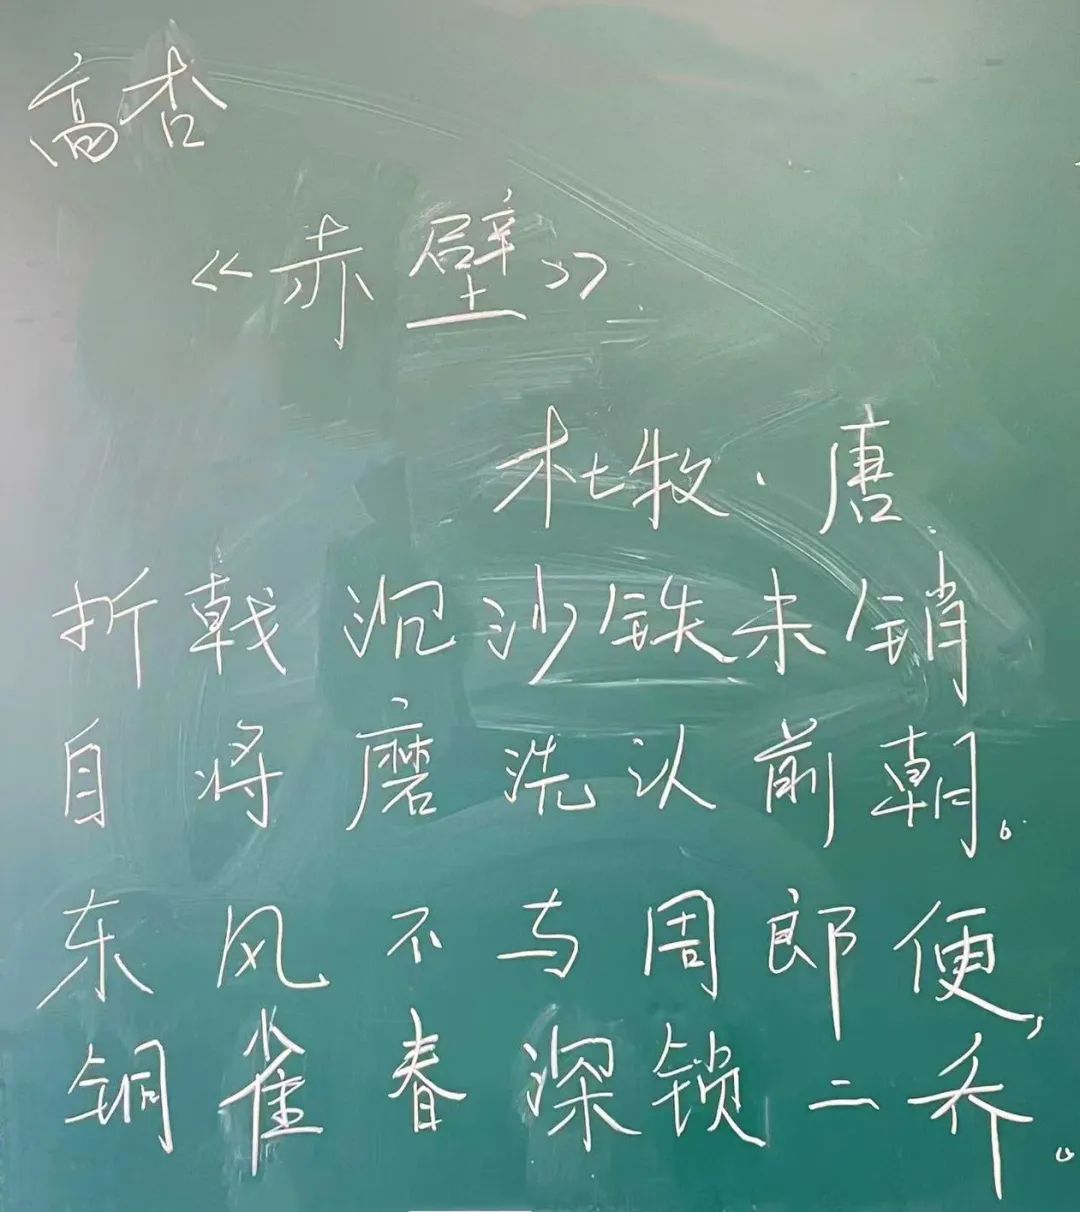 高杏
《赤壁》
杜牧·唐
折戟沉沙铁未销
自将磨洗认前朝。
东风不与周郎便,
铜雀春深锁二乔。